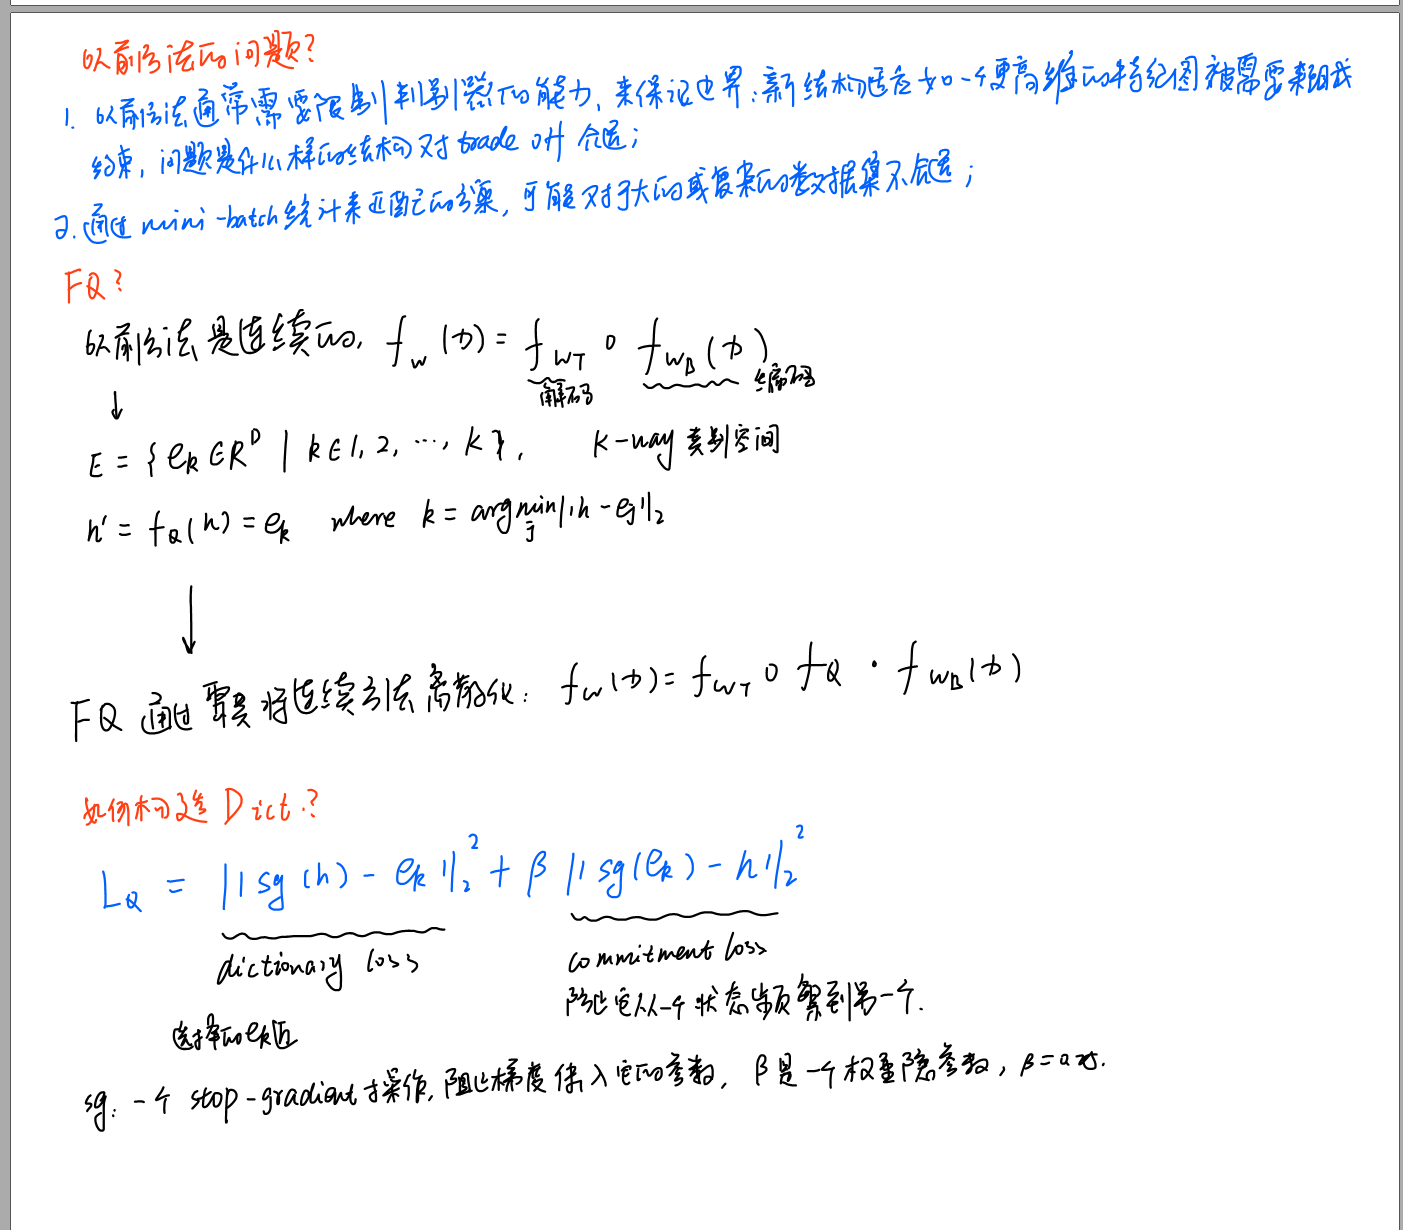 以前方法的问题?
1. 以前方法通常需要限制判别器的能力, 来保证边界: 新结构适应如一个更高维的特征图被需要来组成
约束, 问题是什么样的结构对 trade off 合适;
2. 通过 mini-batch 统计来匹配的方案, 可能对于大的或复杂的数据集不合适;
FQ?
以前方法是连续的, f_w(x) = f_{WT} ∘ f_{WB}(x)
解码 编码
↓
E = {e_k ∈ R^D | k ∈ 1, 2, ⋯, K}, K-way 类别空间
h' = f_Q(h) = e_k where k = argmin_j ||h - e_j||_2
↓
FQ 通过 将连续方法离散化: f_w(x) = f_{WT} ∘ f_Q · f_{WB}(x)
如何构造 Dict.?
L_Q = ||sg(h) - e_k||_2^2 + β ||sg(e_k) - h||_2^2
dictionary loss commitment loss
防止它从一个状态频繁到另一个.
选择的e_k近
sg: 一个 stop-gradient 操作, 阻止梯度传入它的参数, β是一个权重隐参数, β=0.25.